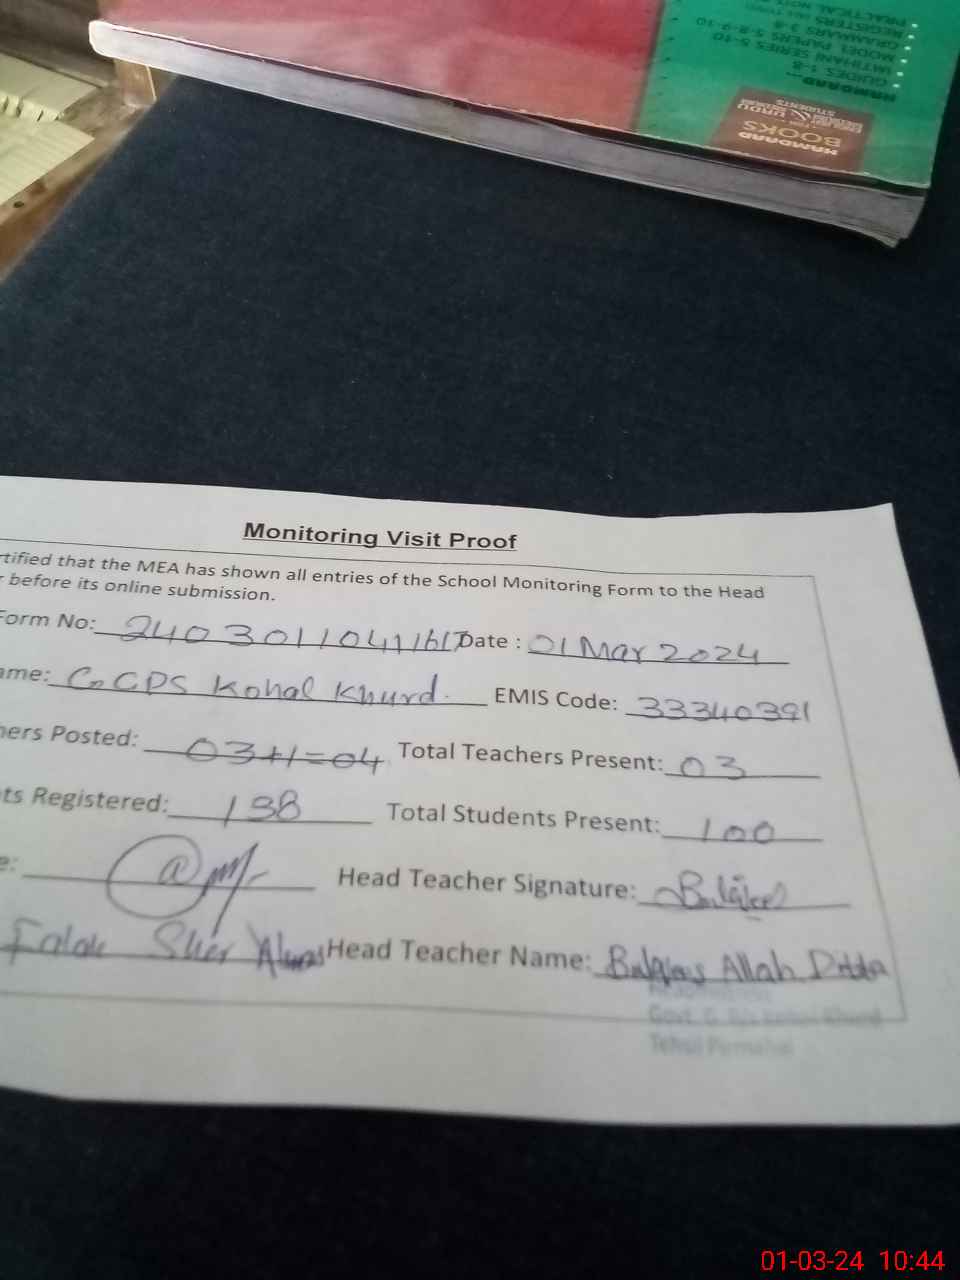 HAMDARD
GUIDES 1-8
IMTIHANI SERIES 5-10
MODEL PAPERS 5-8-9-10
GRAMMARS 3-8
REGISTERS
PRACTICAL NOT
HAMDARD
BOOKS
URDU &
STUDENTS
Monitoring Visit Proof
rtified that the MEA has shown all entries of the School Monitoring Form to the Head
r before its online submission.
Form No: Date : 01 Mar 2024
ame: GGPS Kohal Khurd. EMIS Code: 33340391
hers Posted: 03+1=04 Total Teachers Present: 03
ts Registered: 138 Total Students Present: 100
e: Head Teacher Signature:
Falak Sher Head Teacher Name: Allah Ditta
01-03-24 10:44